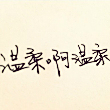 温柔啊温柔